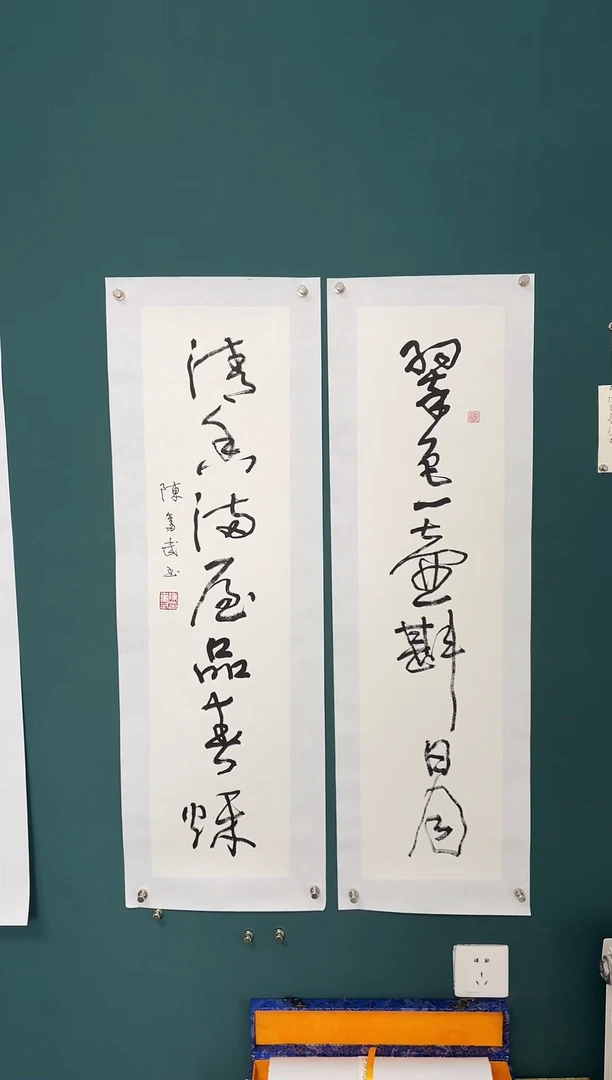 翠色一壺斟日月
清香满屋品春秋
陳
武书